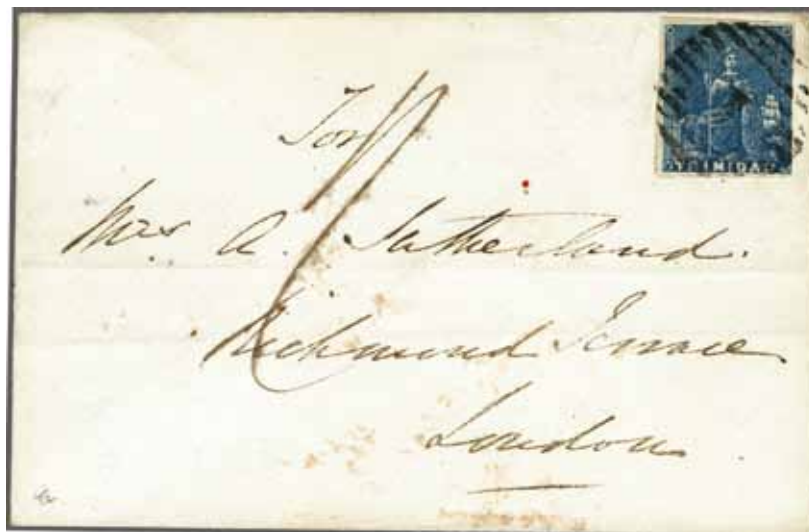 TRINIDAD
For
Mrs A. Sutherland.
Richmond Terrace
London